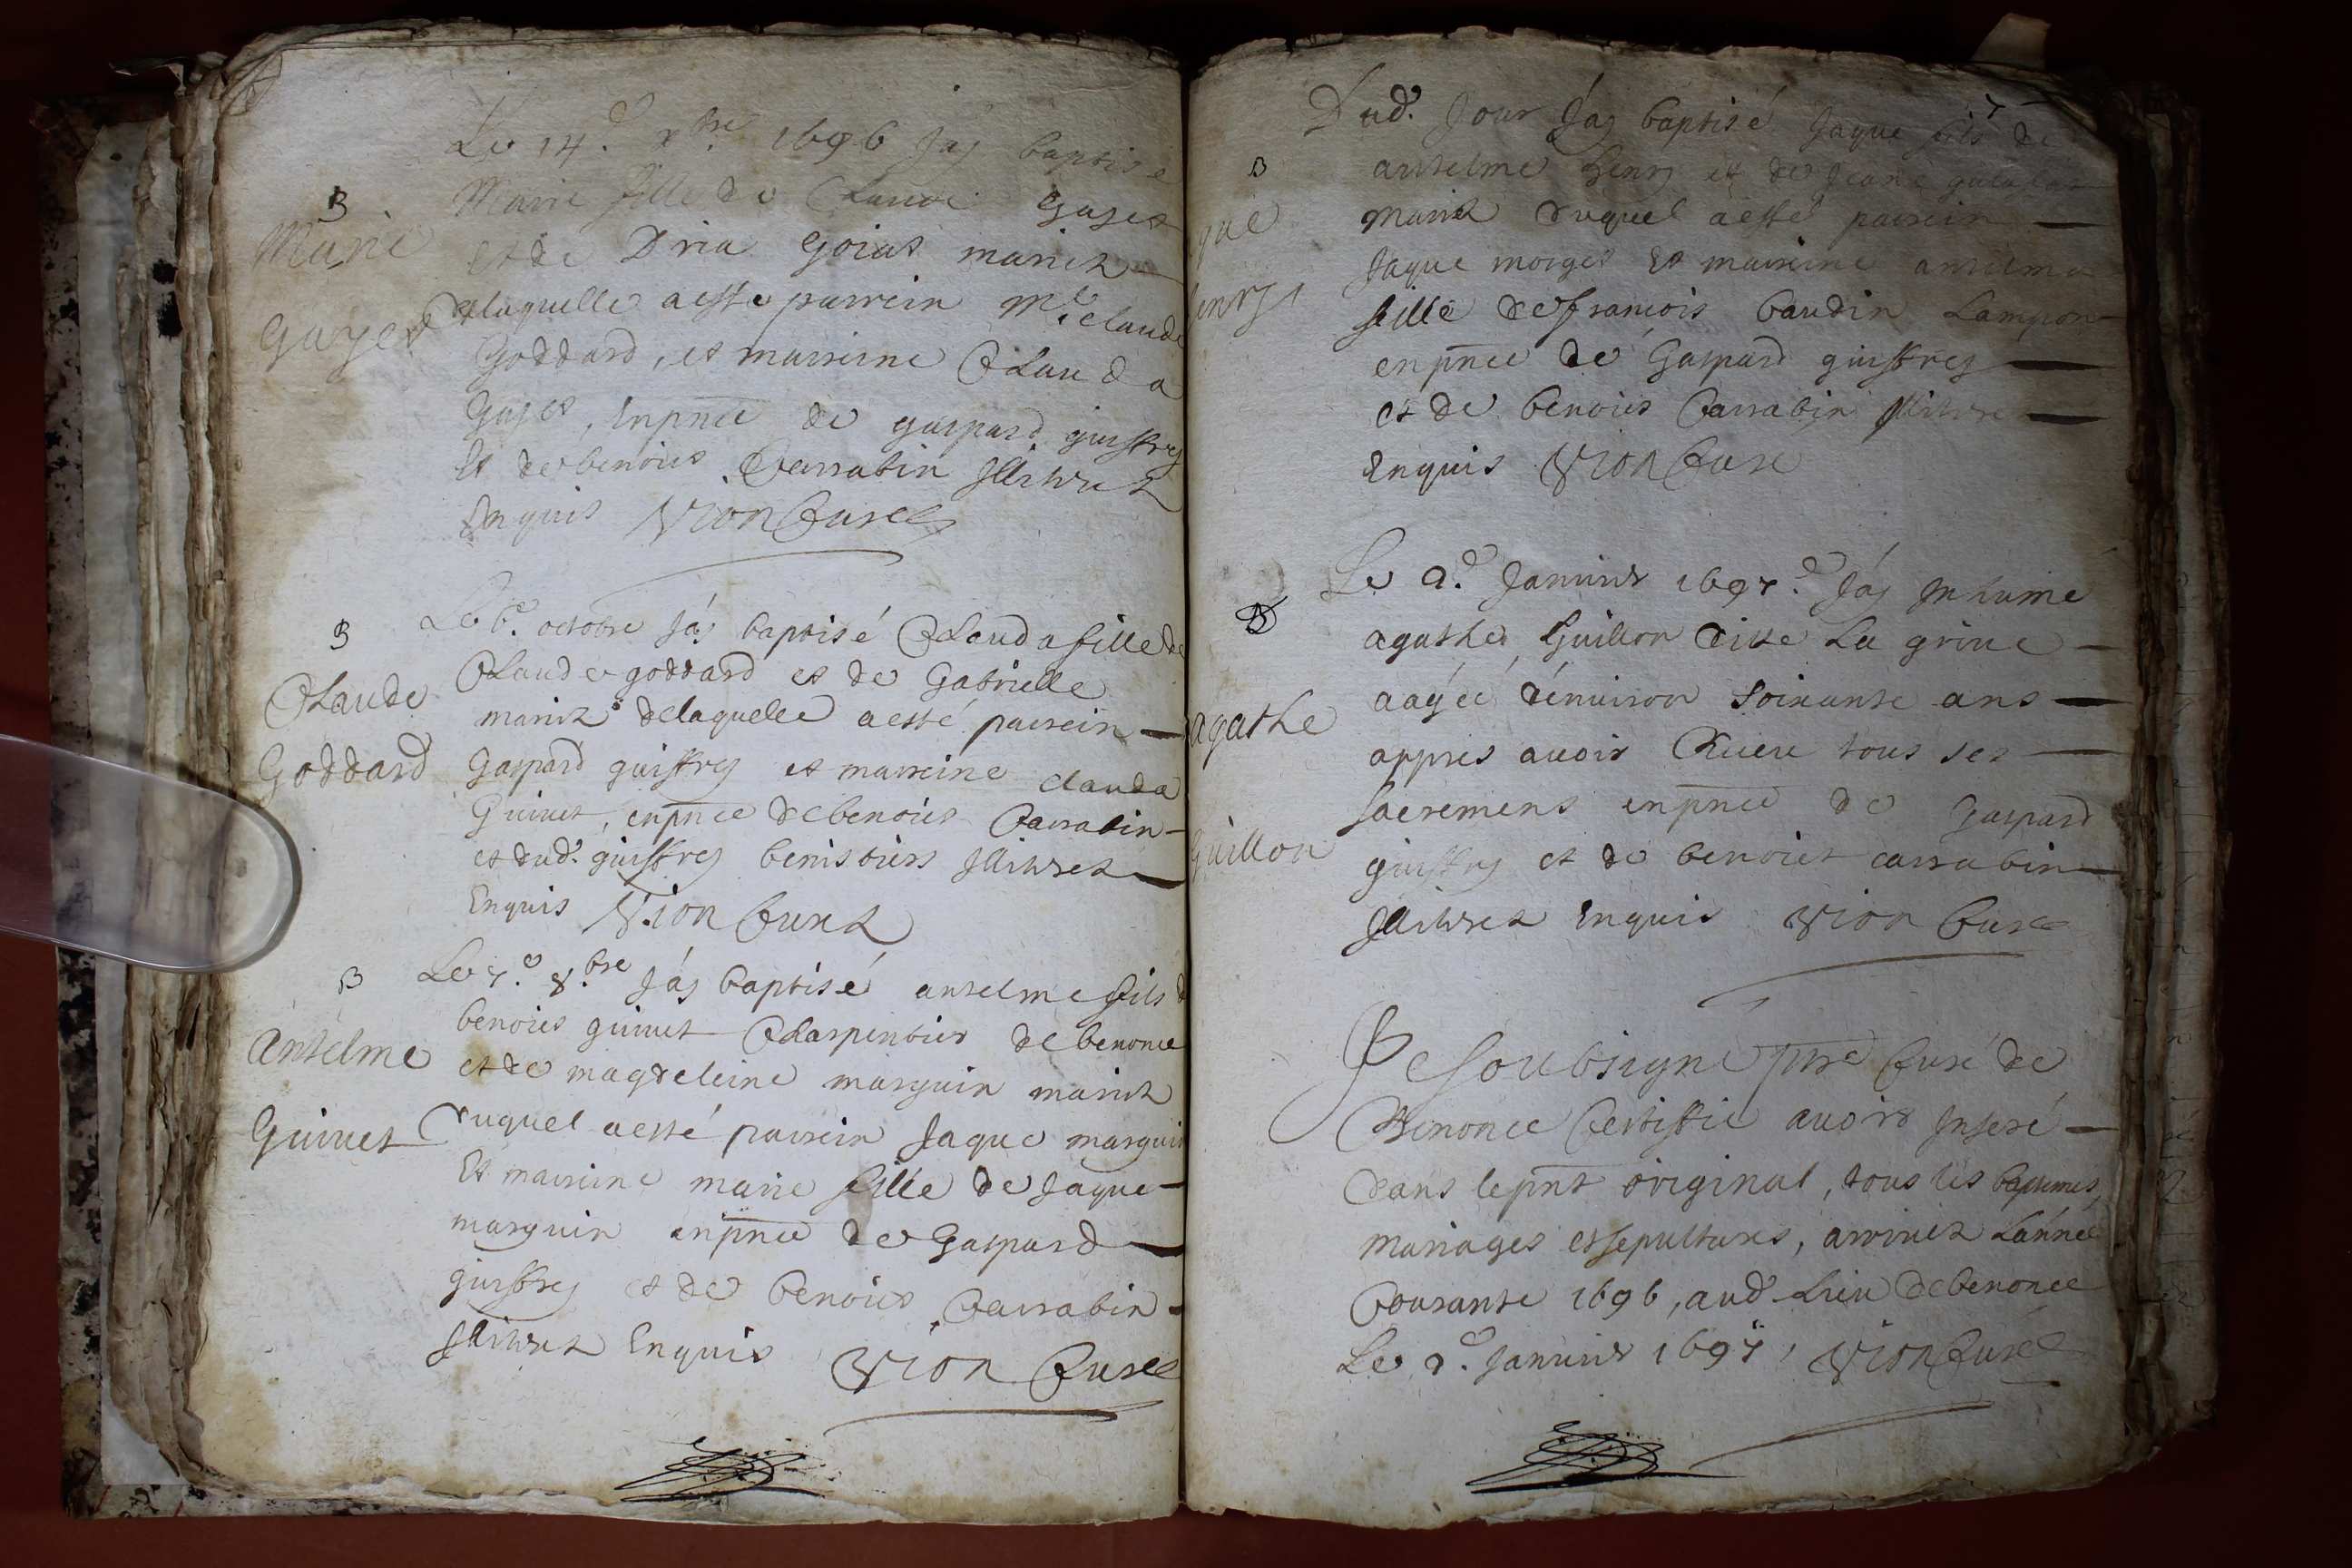 Le 14.e xbre 1696 Jay baptisé
B
Marie fille de Claude Gayet
Marie
et de Dria Goiat mariez
delaquelle a esté parrein Me. Claude
Gayet
Goddard, et marreine Clauda
Gayet, enpnce de gaspard guiffrey
Et de benoict Carrabin illitrez
Enquis Vion Curé
B
Le 6.e octobre Jay baptisé Clauda fille de
Claude
Claude goddard et de Gabrielle
mariez delaquelle a esté parrein
Goddard
Gaspard guiffrey et marreine clauda
Guinet, enpnce de benoict Carrabin
et dud. guiffrey illitrez
Enquis Vion Curé
B
Le 7.e 8.bre Jay baptisé antelme fils de
benoict guinet Charpentier de benonce
Antelme
et de magdeleine marguin mariez
Guinet
duquel a esté parrein Jaque marguin
Et marreine marie fille de Jaque
marguin enpnce de Gaspard
guiffrey et de benoict Carrabin
illitrez Enquis Vion Curé
7
Dud. Jour Jay baptisé Jaque fils de
B
antelme henry et de Jeane
mariez duquel a esté parrein
que
Jaque moiget Et marreine antelma
henry
fille de francois baudin Lampon
enpnce de Gaspard guiffrey
et de benoict Carrabin illitrez
Enquis Vion Curé
Le 2.e Januier 1697.e Jay Inhumé
agathe Guillon ditte La grive
aagée denuiron soixante ans
agathe
appres auoir Receu tous ses
sacremens enpnce de Gaspard
Guillon
guiffrey et de benoict carrabin
illitrez Enquis Vion Curé
Je soubsigné pbre Curé de
Benonce Certiffie auoir Inseré
dans lepnt original, tous les baptemes,
mariages et sepultures, arriuez Lannée
Courante 1696, aud. Lieu de benonce
Le 2.e Januier 1697, Vion Curé